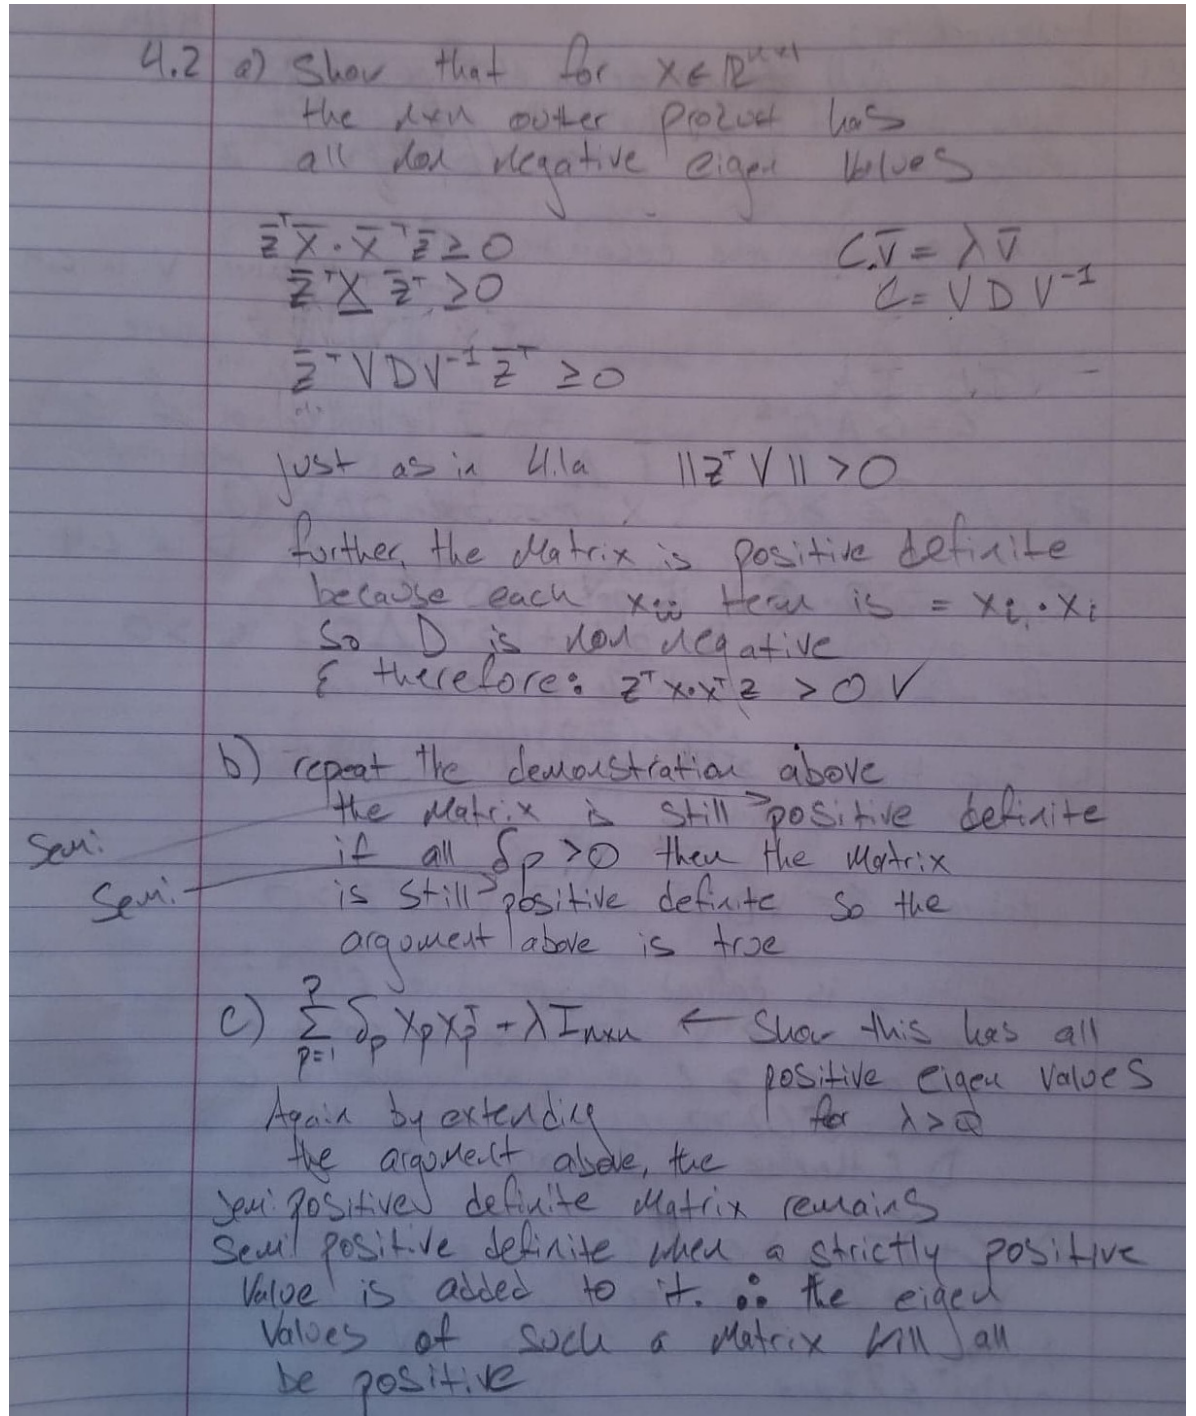 4.2 a) Show that for x ∈ ℝⁿˣ¹
the nxn outter product has
all non negative eigen values
z̄ᵀx̄·x̄ᵀz̄ ≥ 0 C.v̄ = λv̄
z̄ᵀX z̄ᵀ ≥ 0 C = VDV⁻¹
z̄ᵀVDV⁻¹z̄ᵀ ≥ 0
just as in 4.1a ||zᵀV|| > 0
further, the Matrix is positive definite
because each xᵢᵢ term is = xᵢ·xᵢ
So D is non negative
& therefore: zᵀx·xᵀz > 0 ✓
b) repeat the demonstration above
the Matrix is still > positive definite
Semi
if all δₚ > 0 then the Matrix
Semi
is still > positive definite so the
argument above is true
c) Σₚ₌₁ᴾ δₚxₚxₚᵀ + λIₙₓₙ ← Show this has all
positive eigen values
Again by extending for λ > 0
the argument above, the
semi positive definite Matrix remains
semi positive definite when a strictly positive
value is added to it. ∴ the eigen
values of such a Matrix will all
be positive